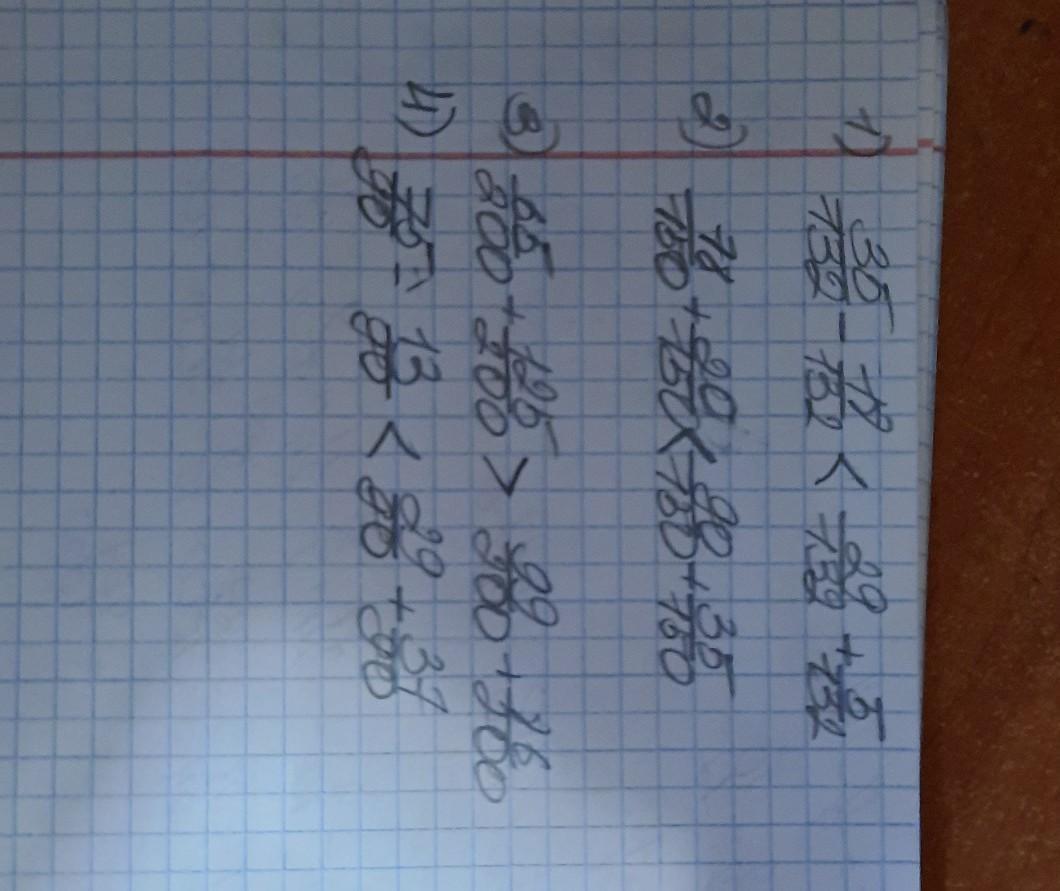 1) 35/132 - 12/132 < 29/132 + 5/132
2) 78/150 + 20/150 < 98/150 + 35/150
3) 65/200 + 125/200 > 99/300 + 26/300
4) 75/90 - 13/90 < 29/90 + 37/90